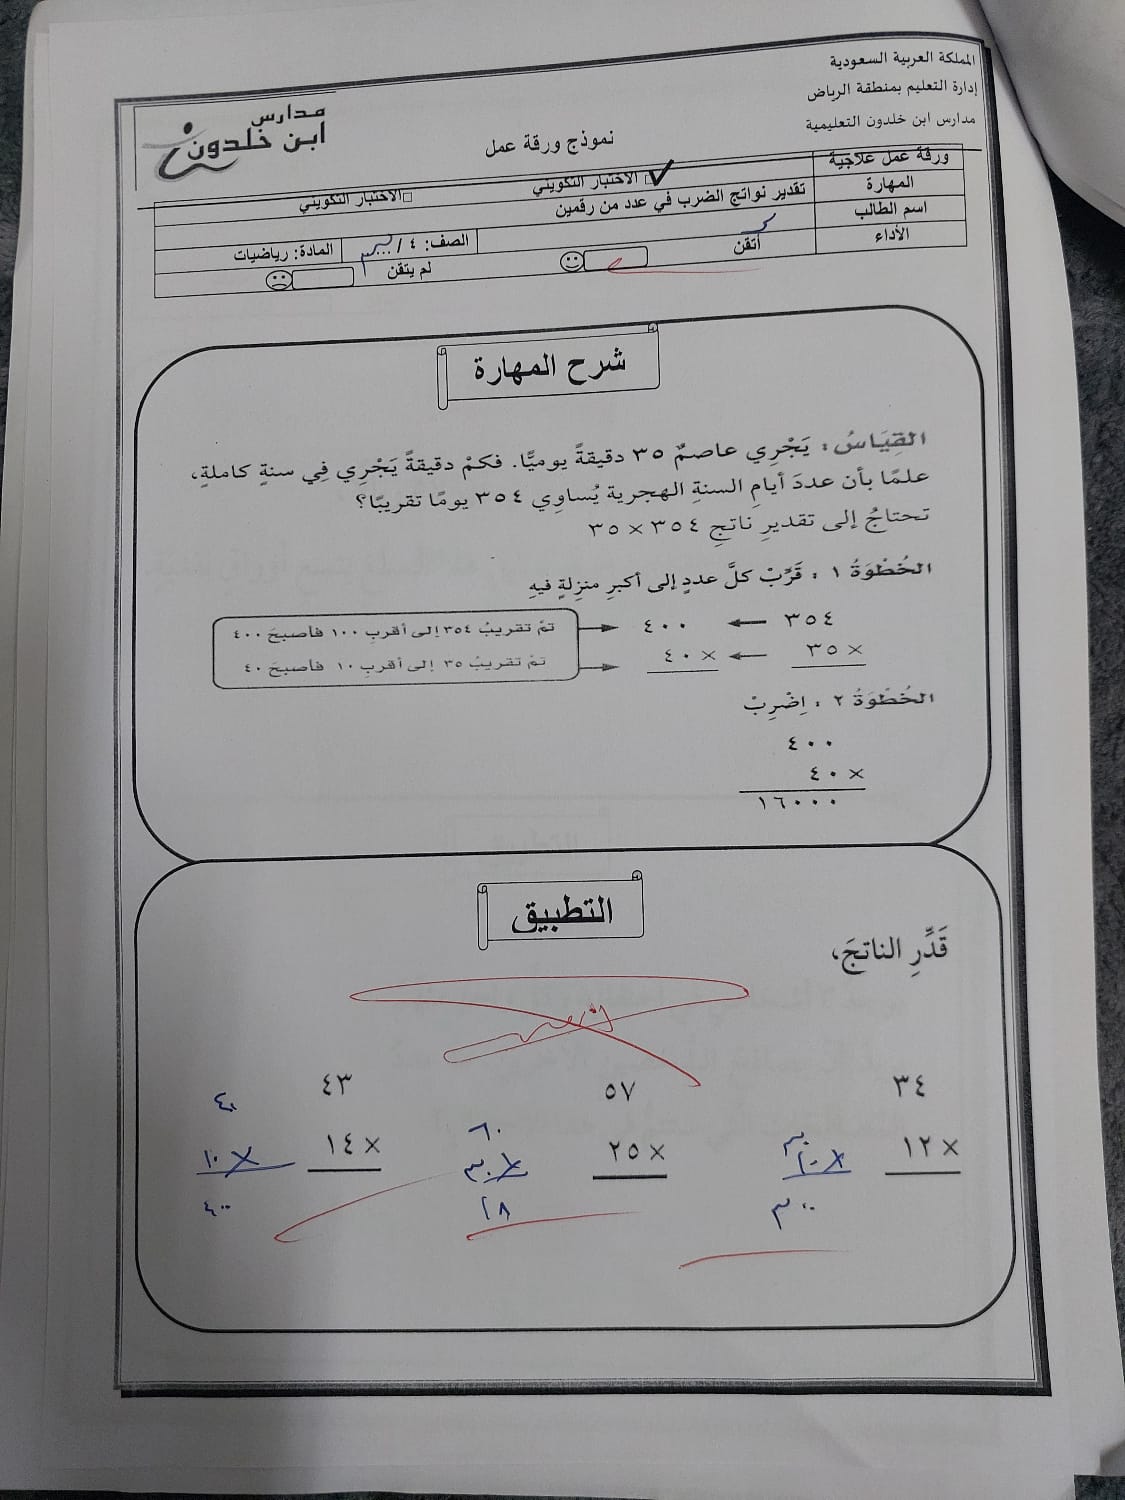 المملكة العربية السعودية
إدارة التعليم بمنطقة الرياض
مدارس ابن خلدون التعليمية
مدارس
ابن خلدون
نموذج ورقة عمل
ورقة عمل علاجية
الاختبار التكويني
الاختبار التكويني
المهارة
تقدير نواتج الضرب في عدد من رقمين
اسم الطالب
الصف: ٤ /
المادة: رياضيات
الأداء
أتقن
لم يتقن
شرح المهارة
القِيَاسُ: يَجْرِي عاصمٌ ٣٥ دقيقةً يوميًّا. فكمْ دقيقةً يَجْرِي فِي سنةٍ كاملةٍ،
علمًا بأن عددَ أيامِ السنةِ الهجرية يُساوِي ٣٥٤ يومًا تقريبًا؟
تحتاجُ إلى تقديرِ ناتجِ ٣٥٤ × ٣٥
الخُطْوَةُ ١ : قَرِّبْ كلَّ عددٍ إلى أكبرِ منزِلةٍ فيهِ
٣٥٤ ← ٤٠٠ تمَّ تقريبُ ٣٥٤ إلى أقربِ ١٠٠ فأصبحَ ٤٠٠
× ٣٥ ← × ٤٠ تمَّ تقريبُ ٣٥ إلى أقربِ ١٠ فأصبحَ ٤٠
الخُطْوَةُ ٢ : اِضْرِبْ
٤٠٠
× ٤٠
١٦٠٠٠
التطبيق
قَدِّرِ الناتجَ،
٣٤ ٥٧ ٤٣ ٤٠
× ١٢ ٣٠ × ٢٥ ٦٠ × ١٤ × ١٠
× ١٠ × ٣٠
٣٠٠ ١٨ ٤٠٠